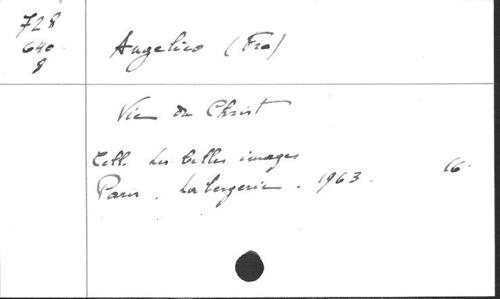 728
640
8
Angelico (Fra)
Vie du Christ
Coll. Les belles images
Paris. La bergerie. 1963. 16